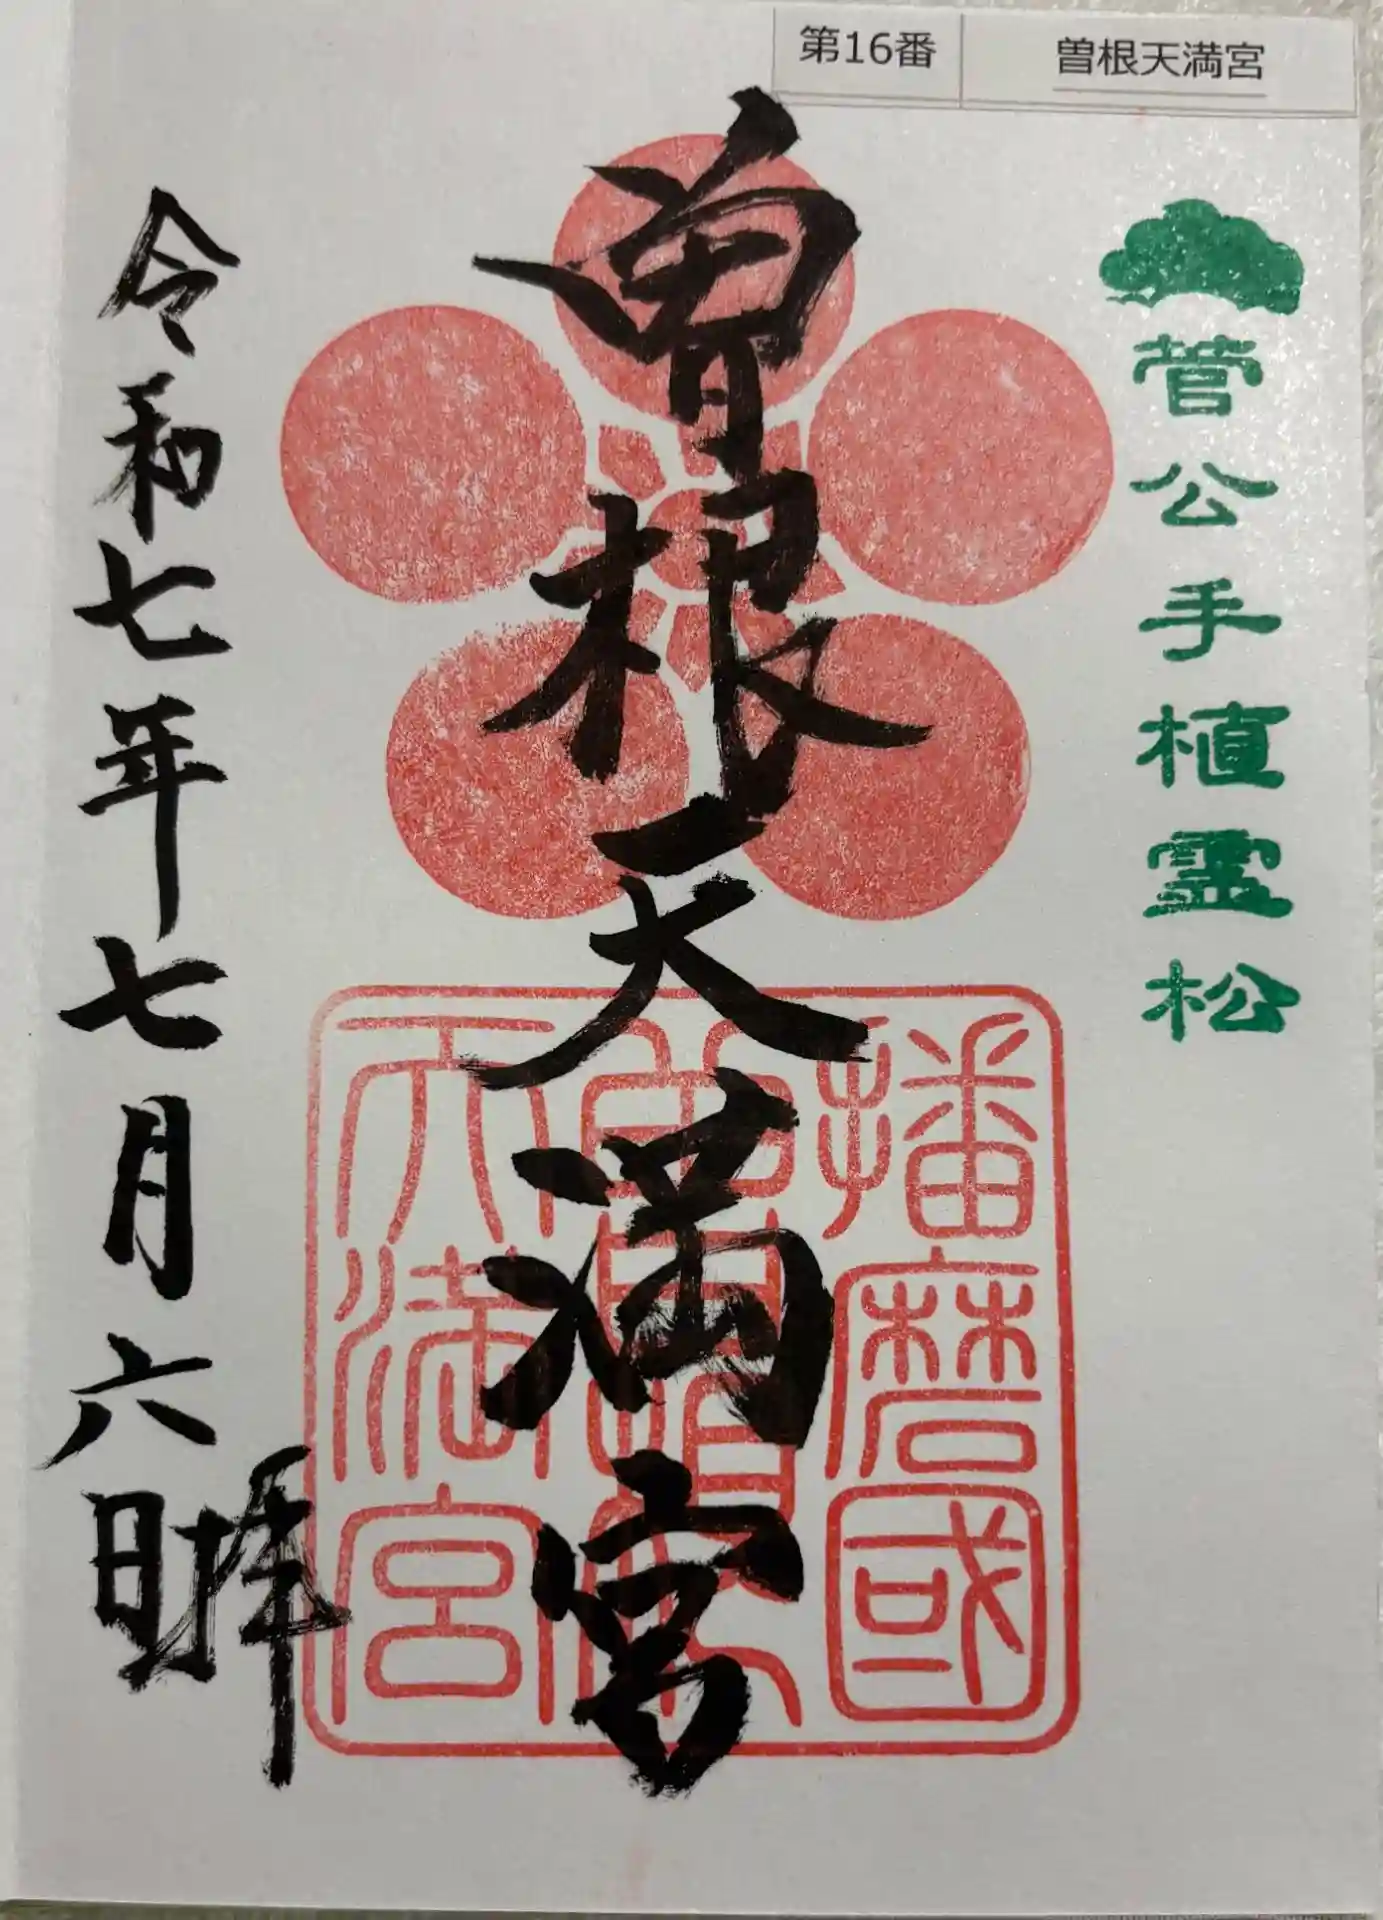 第16番 曽根天満宮
菅公手植霊松
曽根天満宮
播磨國
曽根
天満宮
令和七年七月六日拝